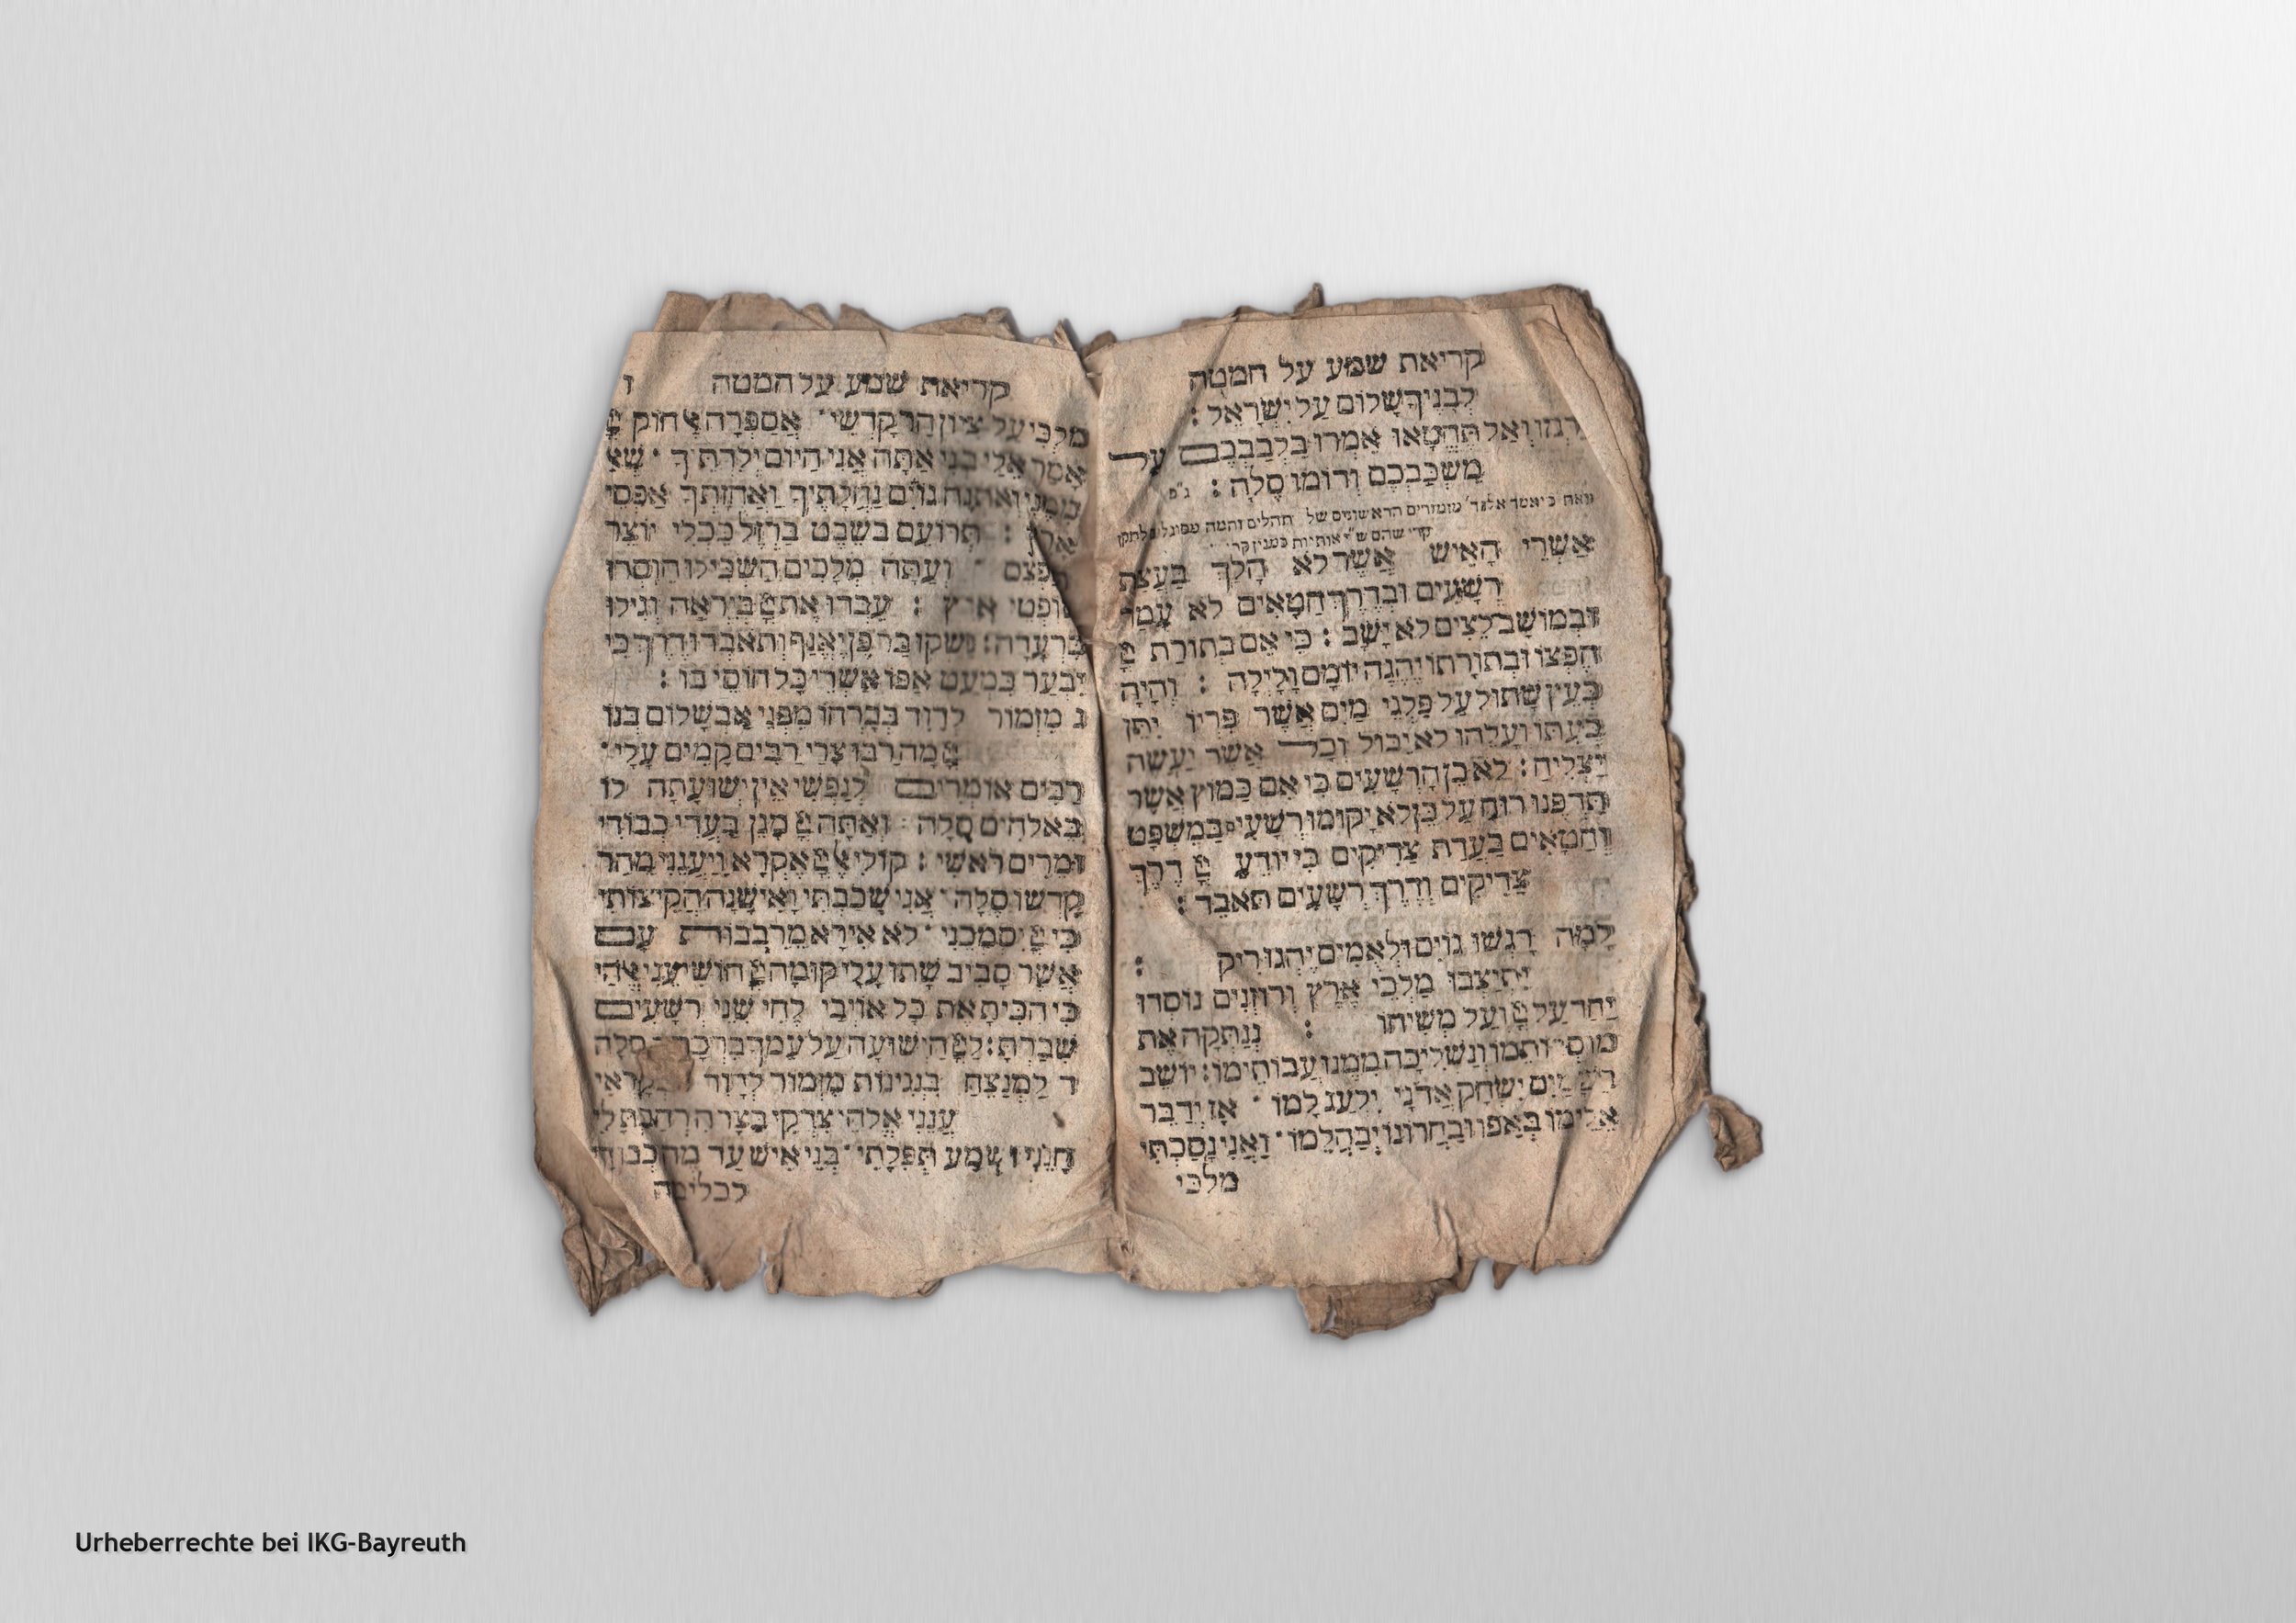 קריאת שמע על המטה
לבניך שלום על ישראל :
רגזו ואל תחטאו אמרו בלבבכם על
משכבכם ודומו סלה : ג"פ
אשרי האיש אשר לא הלך בעצת
רשעים ובדרך חטאים לא עמד
ובמושב לצים לא ישב : כי אם בתורת
חפצו ובתורתו יהגה יומם ולילה : והיה
כעץ שתול על פלגי מים אשר פריו יתן
בעתו ועלהו לא יבול וכל אשר יעשה
יצליח : לא כן הרשעים כי אם כמוץ אשר
תדפנו רוח על כן לא יקומו רשעים במשפט
וחטאים בעדת צדיקים כי יודע דרך
צדיקים ודרך רשעים תאבד :
למה רגשו גוים ולאמים יהגו ריק :
יתיצבו מלכי ארץ ורוזנים נוסדו
יחד על ועל משיחו : ננתקה את
מוסרותמו ונשליכה ממנו עבותימו : יושב
בשמים ישחק אדני ילעג למו · אז ידבר
אלימו באפו ובחרונו יבהלמו · ואני נסכתי
מלכי
קריאת שמע על המטה ו
מלכי על ציון הר קדשי · אספרה חוק
אמר אלי בני אתה אני היום ילדתיך · שא
ממני ואתנה גוים נחלתיך ואחזתך אפסי
ארץ : תרועם בשבט ברזל ככלי יוצר
תנפצם · ועתה מלכים השכילו הוסרו
שופטי ארץ : עבדו את ביראה וגילו
ברעדה : נשקו בר פן יאנף ותאבדו דרך כי
יבער כמעט אפו אשרי כל חוסי בו :
ג מזמור לדוד בברחו מפני אבשלום בנו
מה רבו צרי רבים קמים עלי ·
רבים אומרים לנפשי אין ישועתה לו
באלהים סלה · ואתה מגן בעדי כבודי
ומרים ראשי : קולי אל אקרא ויענני מהר
קדשו סלה · אני שכבתי ואישנה הקיצותי
כי יסמכני · לא אירא מרבבות עם
אשר סביב שתו עלי קומה הושיעני אלהי
כי הכית את כל אויבי לחי שני רשעים
שברת : לה הישועה על עמך ברכתך סלה
ד למנצח בנגינות מזמור לדוד בקראי
ענני אלהי צדקי בצר הרחבת לי
חנני ושמע תפלתי · בני איש עד מה כבודי
לכלימה
Urheberrechte bei IKG-Bayreuth